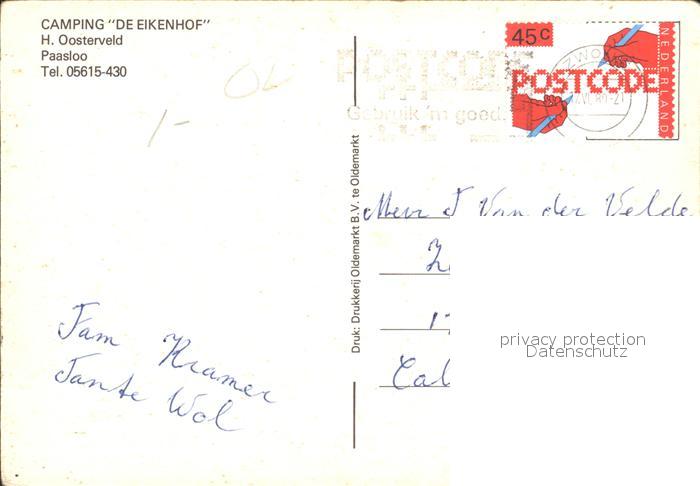 CAMPING "DE EIKENHOF"
H. Oosterveld
Paasloo
Tel. 05615-430
45c
POSTCODE
NEDERLAND
POSTCODE
Gebruik 'm goed.
Druk: Drukkerij Oldemarkt B.V. te Oldemarkt
J Van der Velde
privacy protection
Datenschutz
Fam Kramer
Tante Wol